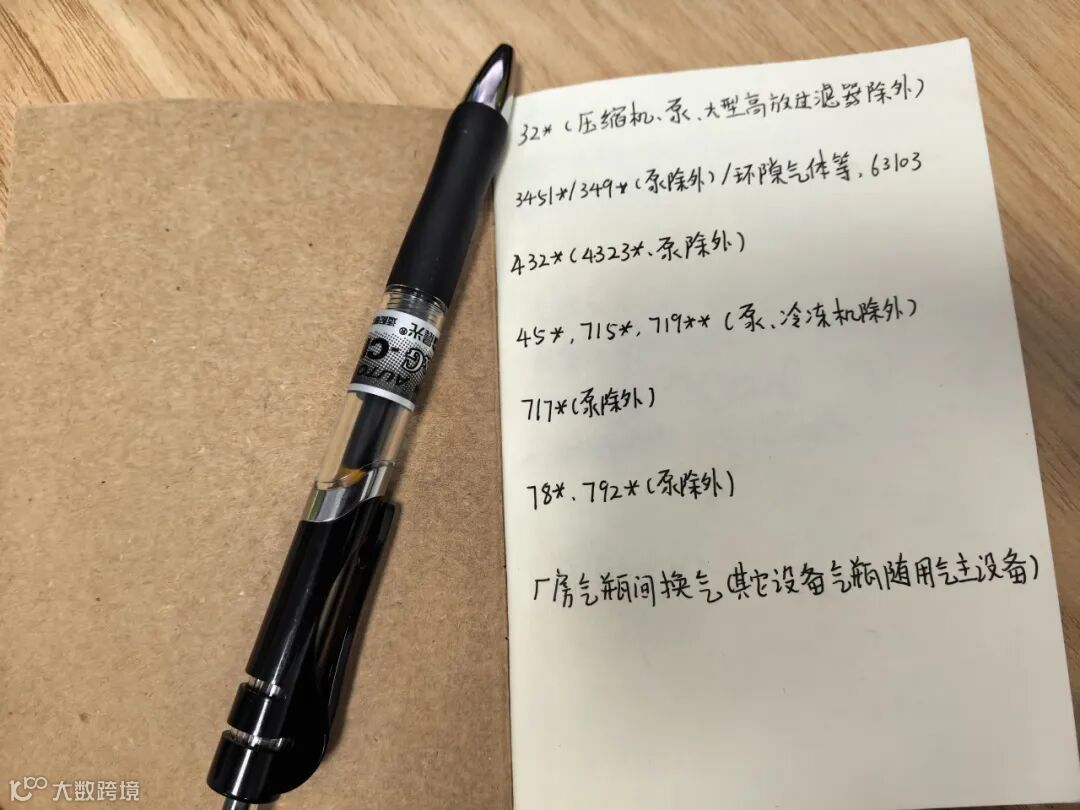 32*(压缩机、泵、大型高放过滤器除外)
3451*/349*(泵除外)/环隙气体等,63103
432*(4323*、泵除外)
45*,715*,719**(泵、冷冻机除外)
717*(泵除外)
78*、792*(泵除外)
厂房气瓶间换气(其它设备气瓶随用气主设备)
晨光®
AUTO
大数跨境